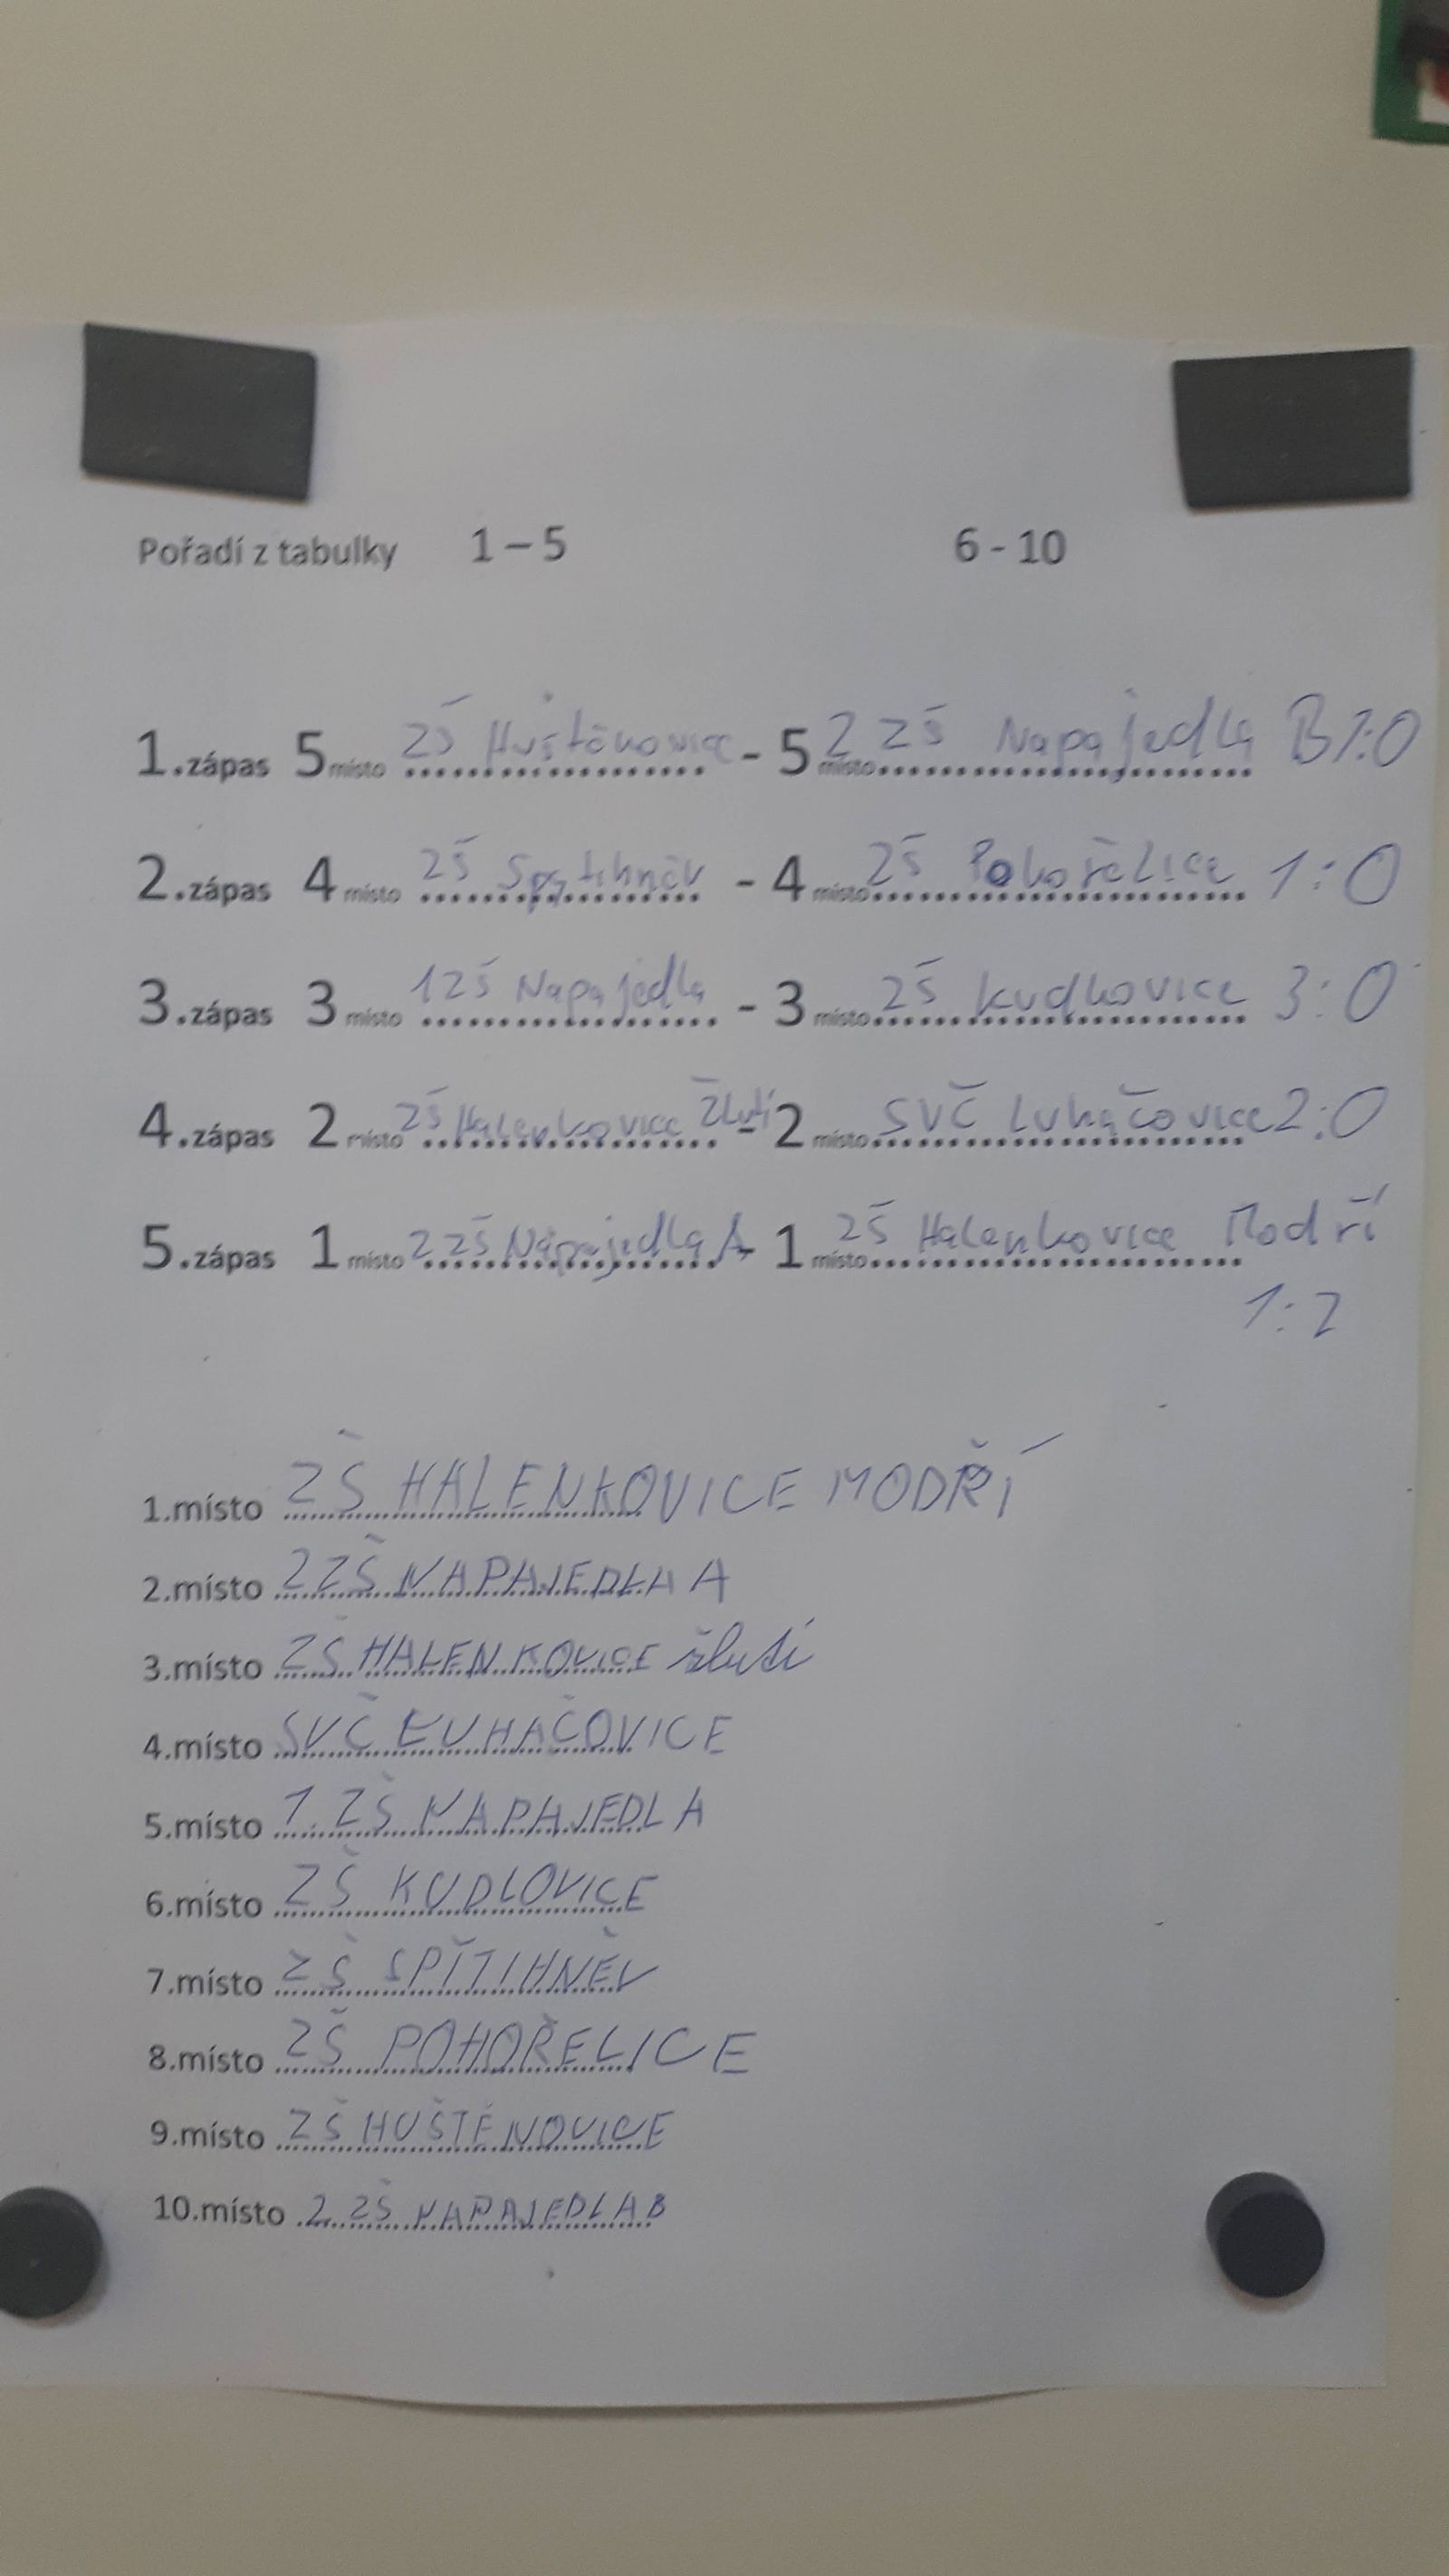 Pořadí z tabulky 1 – 5 6 - 10
1.zápas 5 místo ZŠ Huštěnovice - 5 místo 2 ZŠ Napajedla B 1:0
2.zápas 4 místo ZŠ Spytihněv - 4 místo ZŠ Pohořelice 1:0
3.zápas 3 místo 1 ZŠ Napajedla - 3 místo ZŠ Kudlovice 3:0
4.zápas 2 místo ZŠ Halenkovice Žlutí - 2 místo SVČ Luhačovice 2:0
5.zápas 1 místo 2 ZŠ Napajedla A - 1 místo ZŠ Halenkovice Modří
1:2
1.místo ZŠ HALENKOVICE MODŘÍ
2.místo 2 ZŠ NAPAJEDLA A
3.místo ZŠ HALENKOVICE žlutí
4.místo SVČ LUHAČOVICE
5.místo 1. ZŠ NAPAJEDLA
6.místo ZŠ KUDLOVICE
7.místo ZŠ SPÏTIHNĚV
8.místo ZŠ POHOŘELICE
9.místo ZŠ HUŠTĚNOVICE
10.místo 2. ZŠ NAPAJEDLA B